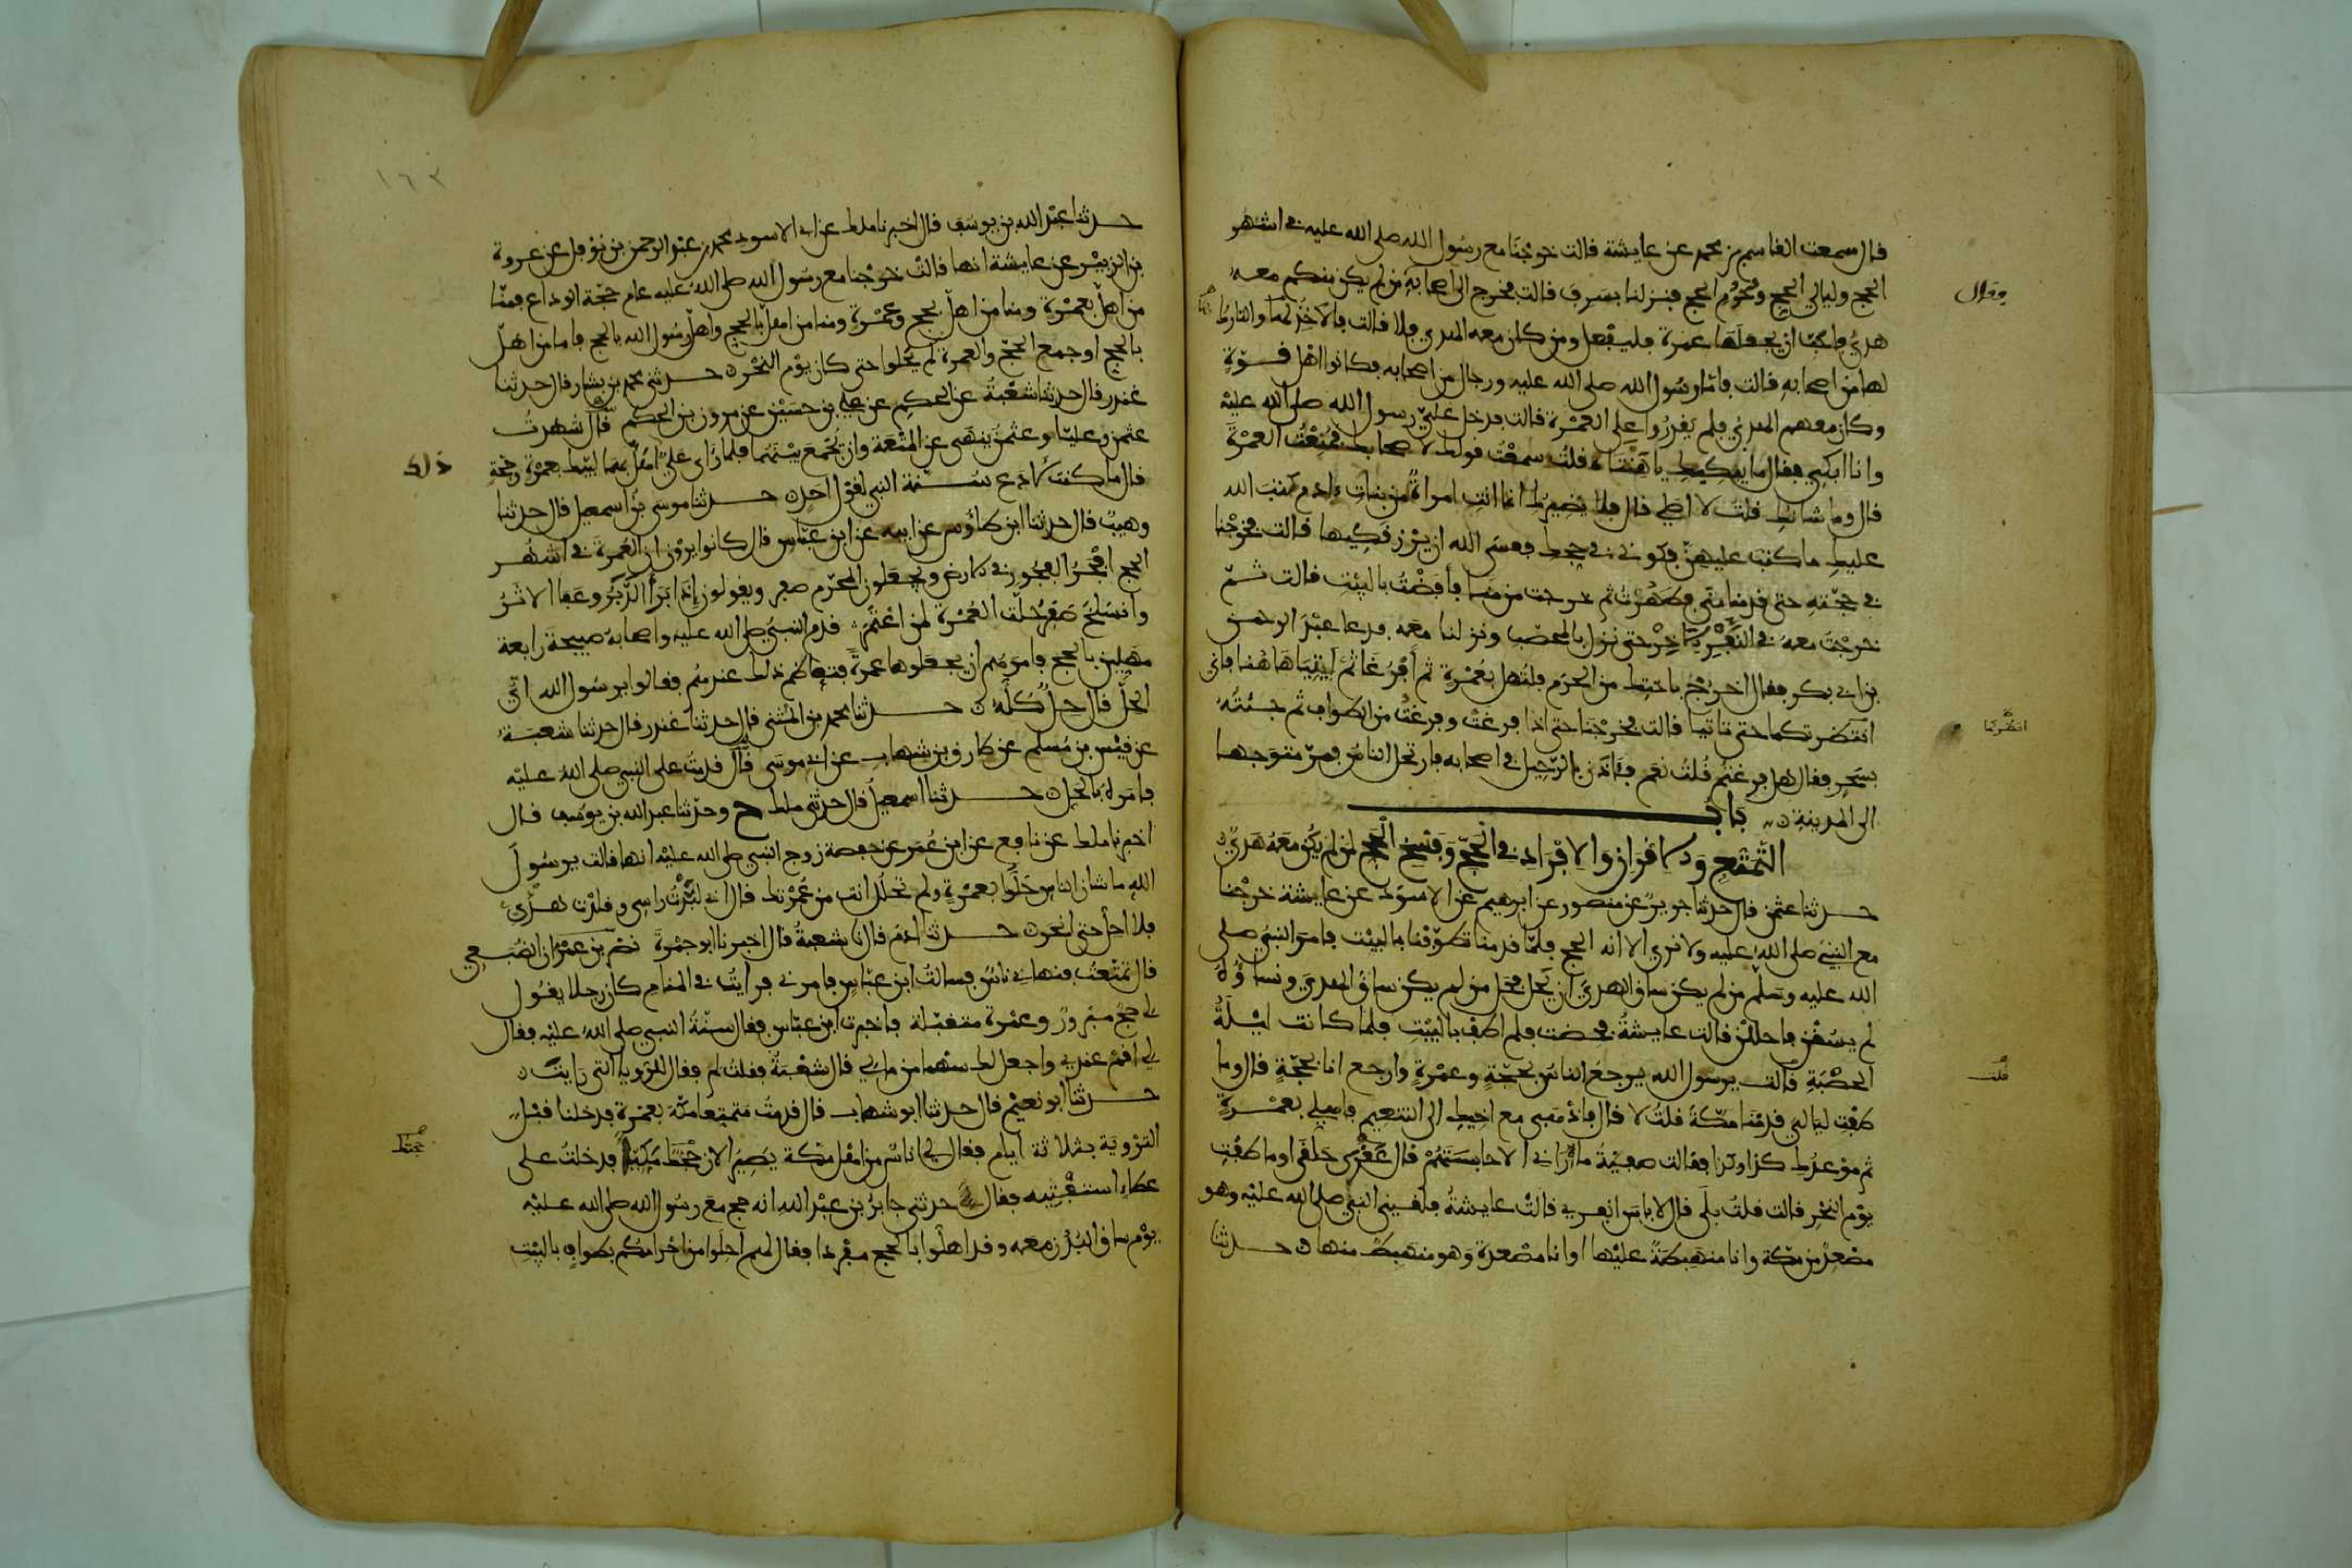 قال سمعت القاسم بن محمد عن عايشة قالت خرجنا مع رسول الله صلى الله عليه في اشهر
الحج وليالي الحج وحرم الحج فنزلنا بسرف قالت فخرج الى اصحابه من لم يكن منكم معه
فقال
هدي فاحب ان يجعلها عمرة فليفعل ومن كان معه الهدي فلا قالت فالاخذ بها والتارك
لها من اصحابه قالت فاما رسول الله صلى الله عليه ورجال من اصحابه فكانوا اهل قوة
وكان معهم الهدي فلم يقدروا على العمرة قالت فدخل علي رسول الله صلى الله عليه
وانا ابكي فقال ما يبكيك يا هنتاه قلت سمعت قولك لاصحابك فمنعت العمرة
قال وما شانك قلت لا اصلي قال فلا يضيرك انما انت امراة من بنات ءادم كتب الله
عليك ما كتب عليهن فكوني في حجك فعسى الله ان يرزقكيها قالت فخرجنا
في حجته حتى قدمنا منى فطهرت ثم خرجت من منى فافضت بالبيت قالت ثم
خرجت معه في النفر الاخر حتى نزل بالمحصب ونزلنا معه فدعا عبد الرحمن
بن ابي بكر فقال اخرج باختك من الحرم فلتهل بعمرة ثم افرغا ثم ايتيا هاهنا فاني
انتظركما حتى تاتيا قالت فخرجنا حتى اذا فرغت وفرغت من الطواف ثم جئته
انظركما
بسحر فقال هل فرغتم قلت نعم فاذن بالرحيل في اصحابه فارتحل الناس فمر متوجها
الى المدينة باب
التمتع والاقران والافراد في الحج وفسخ الحج لمن لم يكن معه هدي
حدثنا عثمن قال حدثنا جرير عن منصور عن ابرهيم عن الاسود عن عايشة خرجنا
مع النبي صلى الله عليه ولا نرى الا انه الحج فلما قدمنا تطوفنا بالبيت فامر النبي صلى
الله عليه وسلم من لم يكن ساق الهدي ان يحل فحل من لم يكن ساق الهدي ونساؤه
لم يسقن فاحللن قالت عايشة فحضت فلم اطف بالبيت فلما كانت ليلة
الحصبة قالت يرسول الله يرجع الناس بحجة وعمرة وارجع انا بحجة قال وما
قلت
طفت ليالي قدمنا مكة قلت لا قال فاذهبي مع اخيك الى التنعيم فاهلي بعمرة
ثم موعدك كذا وكذا فقالت صفية ما اراني الا حابستهم قال عقرى حلقى اوما طفت
يوم النحر قالت قلت بلى قال لا باس انفري قالت عايشة فلقيني النبي صلى الله عليه وهو
مصعد من مكة وانا منهبطة عليها او انا مصعدة وهو منهبط منها حدثنا
١٦٣
حدثنا عبد الله بن يوسف قال اخبرنا ملك عن ابي الاسود محمد بن عبد الرحمن بن نوفل عن عروة
بن الزبير عن عايشة انها قالت خرجنا مع رسول الله صلى الله عليه عام حجة الوداع فمنا
من اهل بعمرة ومنا من اهل بحج وعمرة ومنا من اهل بالحج واهل رسول الله بالحج فاما من اهل
بالحج او جمع الحج والعمرة لم يحلوا حتى كان يوم النحر حدثني محمد بن بشار قال حدثنا
غندر قال حدثنا شعبة عن الحكم عن علي بن حسين عن مروان بن الحكم قال شهدت
عثمن وعليا وعثمن ينهى عن المتعة وان يجمع بينهما فلما راى علي اهل بهما لبيك بعمرة وحجة
ذلك
قال ما كنت لادع سنة النبي لقول احد حدثنا موسى بن اسمعيل قال حدثنا
وهيب قال حدثنا ابن طاوس عن ابيه عن ابن عباس قال كانوا يرون ان العمرة في اشهر
الحج افجر الفجور في الارض ويجعلون المحرم صفر ويقولون اذا برا الدبر وعفا الاثر
وانسلخ صفر حلت العمرة لمن اعتمر قدم النبي صلى الله عليه واصحابه صبيحة رابعة
مهلين بالحج فامرهم ان يجعلوها عمرة فتعاظم ذلك عندهم فقالوا يرسول الله اي
الحل قال حل كله حدثنا محمد بن المثنى قال حدثنا غندر قال حدثنا شعبة
عن قيس بن مسلم عن طارق بن شهاب عن ابي موسى قال قدمت على النبي صلى الله عليه
فامره بالحل حدثنا اسمعيل قال حدثني ملك ح وحدثنا عبد الله بن يوسف قال
اخبرنا ملك عن نافع عن ابن عمر عن حفصة زوج النبي صلى الله عليه انها قالت يرسول
الله ما شان الناس حلوا بعمرة ولم تحلل انت من عمرتك قال اني لبدت راسي وقلدت هديي
فلا احل حتى انحر حدثنا ادم قال نا شعبة قال اخبرنا ابو جمرة نصر بن عمران الضبعي
قال تمتعت فنهاني ناس فسالت ابن عباس فامرني فرايت في المنام كان رجلا يقول
لي حج مبرور وعمرة متقبلة فاخبرت ابن عباس فقال سنة النبي صلى الله عليه فقال
لي اقم عندي واجعل لك سهما من مالي قال شعبة فقلت لم فقال للرويا التي رايت
حدثنا ابو نعيم قال حدثنا ابو شهاب قال قدمت متمتعا مكة بعمرة فدخلنا قبل
التروية بثلاثة ايام فقال لي اناس من اهل مكة يصير الان حجك مكيا فدخلت على
حجتك
عطاء استفتيه فقال حدثني جابر بن عبد الله انه حج مع رسول الله صلى الله عليه
يوم ساق البدن معه وقد اهلوا بالحج مفردا فقال لهم احلوا من احرامكم بطواف بالبيت